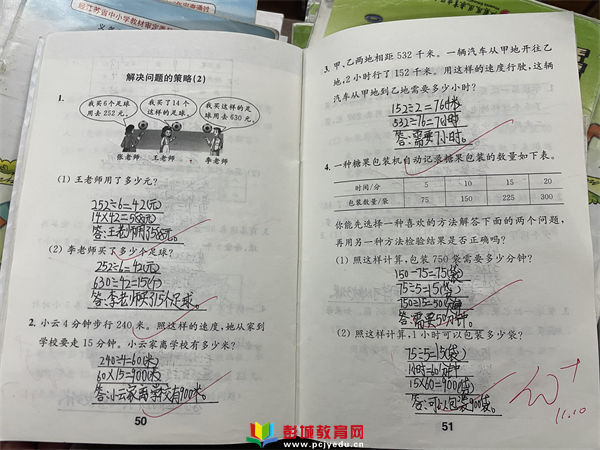 经江苏省中小学教材审定委员
解决问题的策略(2)
1.
我买6个足球
用去252元。
我买了14个
这样的足球。
我买这样的足球
用去630元。
张老师 王老师 李老师
(1) 王老师用了多少元?
252÷6=42(元)
14×42=588(元)
答:王老师用了588元。
(2) 李老师买了多少个足球?
252÷6=42(元)
630÷42=15(个)
答:李老师买了15个足球。
2. 小云4分钟步行240米。照这样的速度,她从家到
学校要走15分钟。小云家离学校有多少米?
240÷4=60(米)
60×15=900(米)
答:小云家离学校有900米。
50
3. 甲、乙两地相距532千米。一辆汽车从甲地开往乙
地,2小时行了152千米。用这样的速度行驶,这辆
汽车从甲地到乙地需要多少小时?
152÷2=76(千米)
532÷76=7(小时)
答:需要7小时。
4. 一种糖果包装机自动记录糖果包装的数量如下表。
时间/分 5 10 15 20
包装数量/袋 75 150 225 300
你能先选择一种喜欢的方法解答下面的两个问题,
再用另一种方法检验结果是否正确吗?
(1) 照这样计算,包装750袋需要多少分钟?
150-75=75(袋)
75÷5=15(袋)
750÷15=50(分钟)
答:需要50分钟。
(2) 照这样计算,1小时可以包装多少袋?
75÷5=15(袋)
1小时=60分钟
15×60=900(袋)
答:可以包装900袋。
11.10
51
彭城教育网
www.pcjyedu.cn